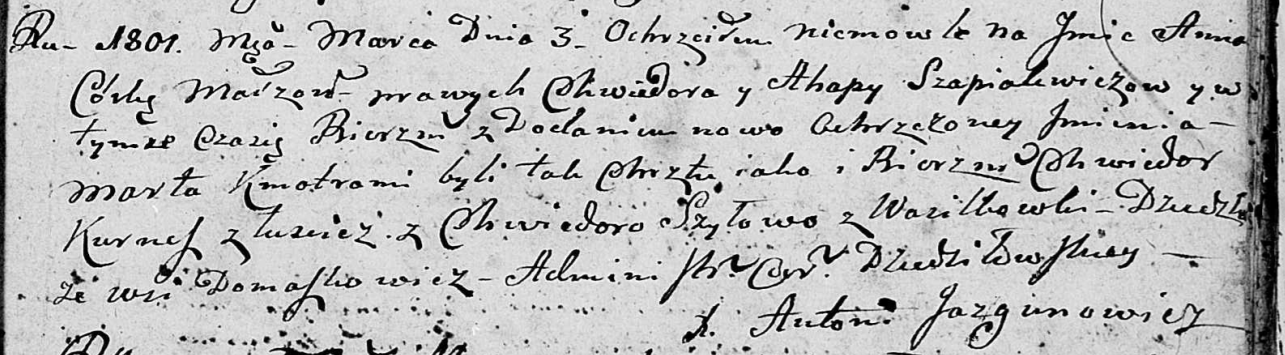 Ru- 1801. Mça- Marca Dnia 3- Ochrzciłem niemowle na Jmie Anna
Córkę Małżon- prawych Chwiedora y Ahapy Szapialewiczow y w
tymże czasię Bierzm z Dodaniem nowo Ochrzczoney Jmienia-
Marta Kmotrami byli tak Chrztu iako i Bierzm Chwiedor
Kurnesz z Chwiedoro Szyłowo z Wasilkowki-
ze wsi Domaszkowicz- Administr. Cer. Dziedziłowskiey-
X. Anton. Jazgunowicz